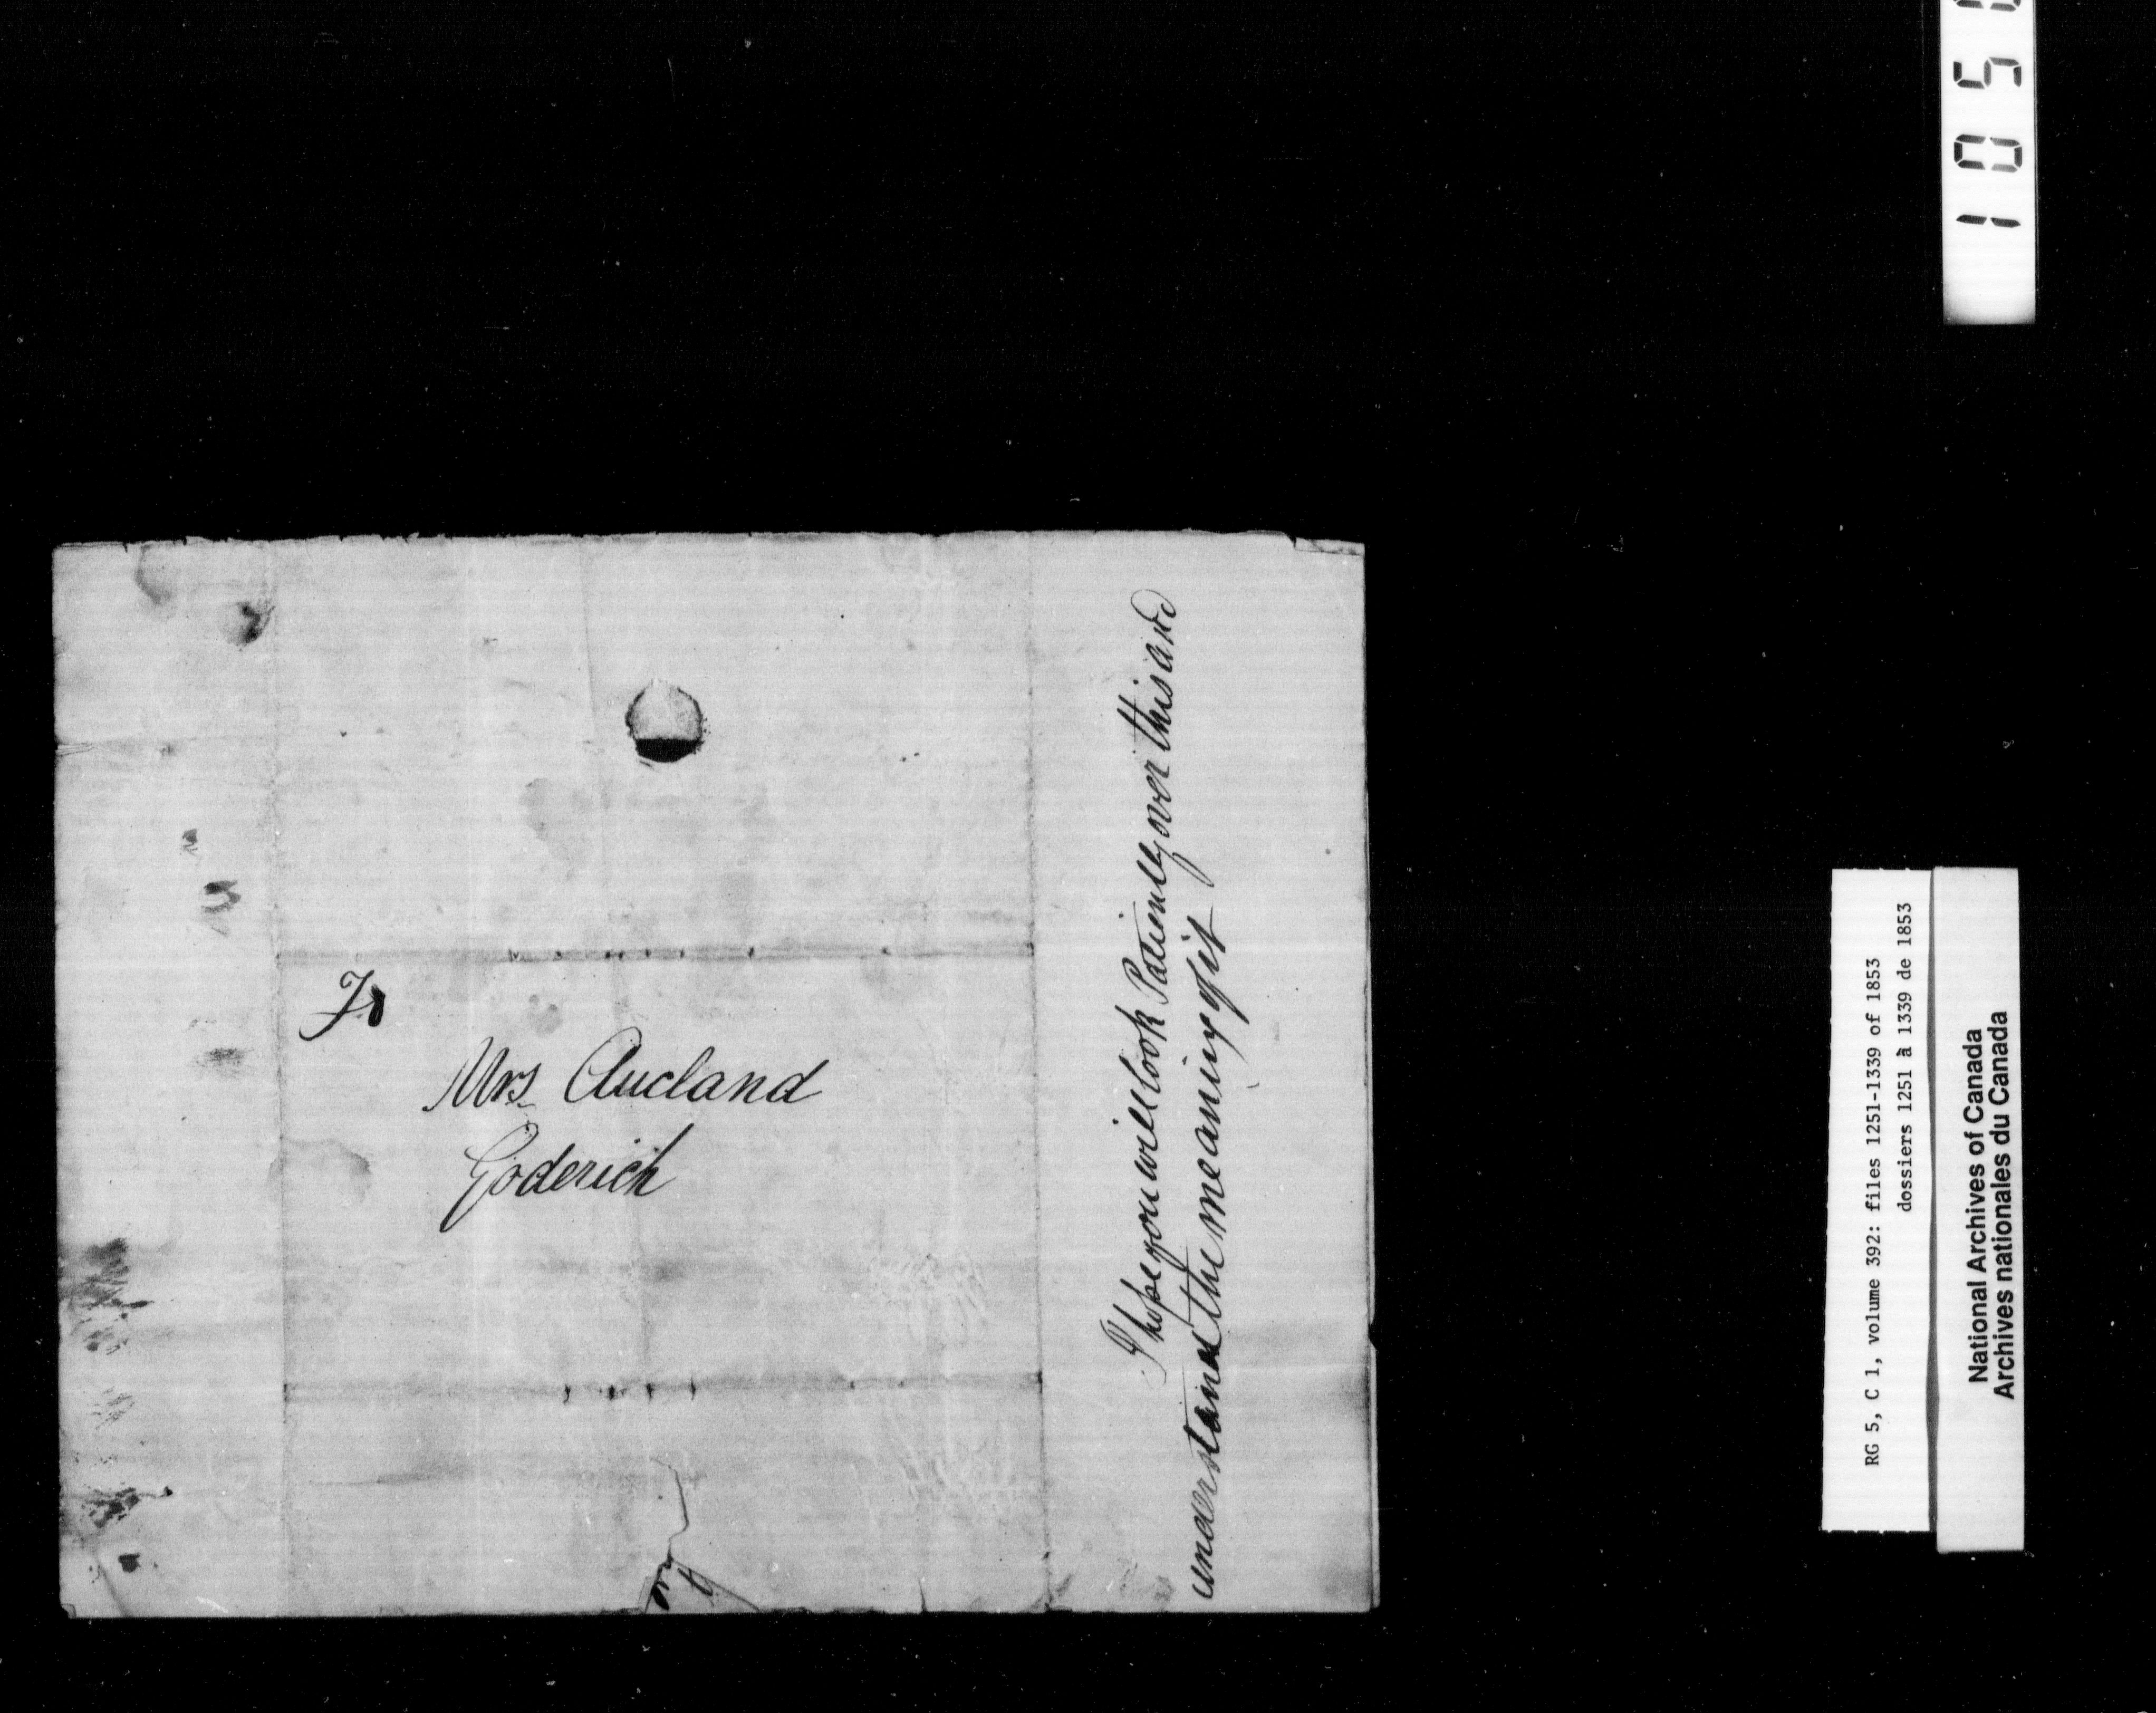 To
Mrs Aucland
Goderich
I hope you will look Patiently over this and
understand the meaning of it
RG 5, C 1, volume 392: files 1251-1339 of 1853
dossiers 1251 à 1339 de 1853
National Archives of Canada
Archives nationales du Canada